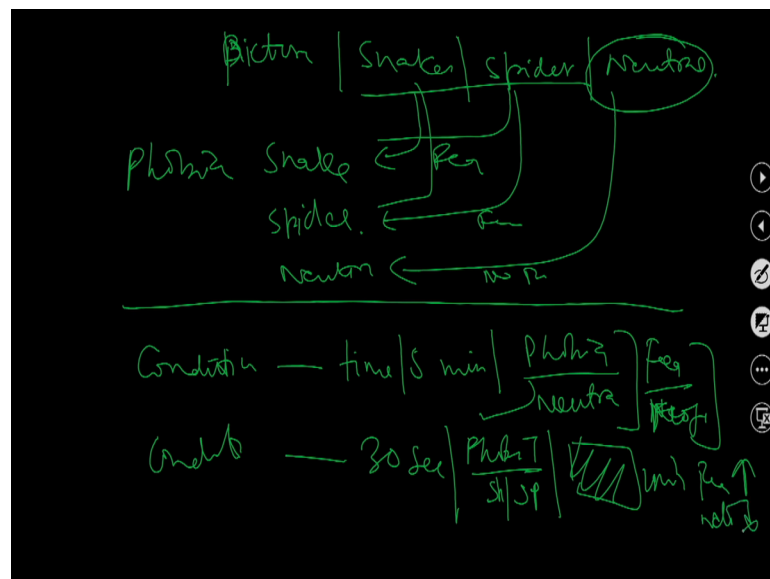 Picture | Snakes | Spider | Neutral
Phobia Snake Fea
spider. Fea
Neutral No
Condition — time | 5 min | Phobia Fea
Neutra
Condit — 30 sec | Phobi Fea ↑
Sn/Sp